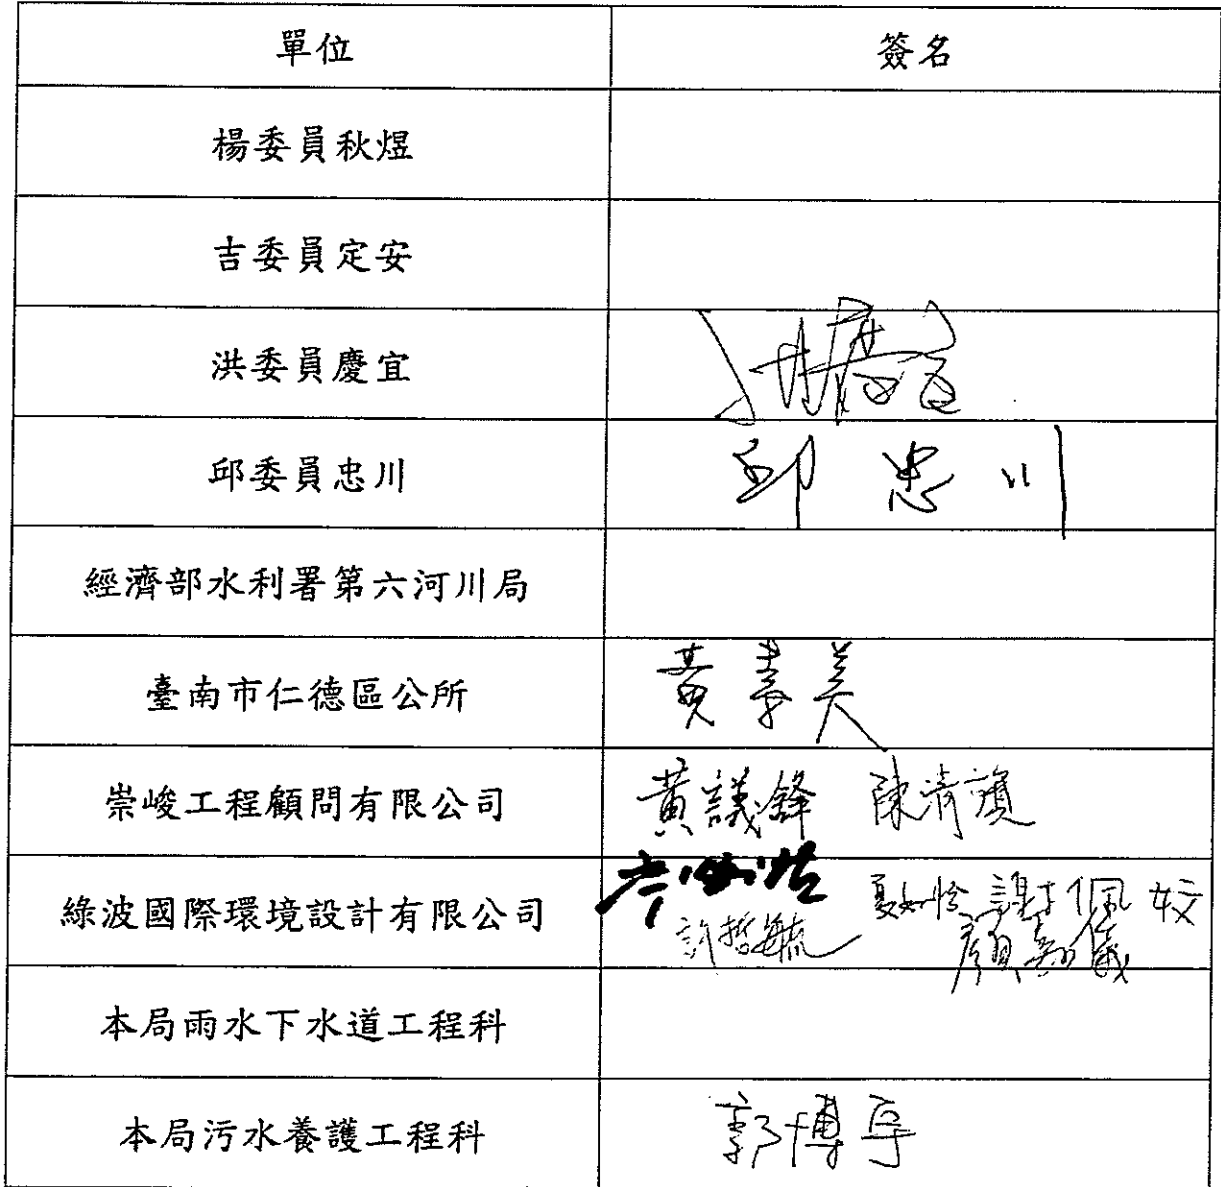 單位 簽名
楊委員秋煜
吉委員定安
洪委員慶宜 洪慶宜
邱委員忠川 邱忠川
經濟部水利署第六河川局
臺南市仁德區公所 黃素美
崇峻工程顧問有限公司 黃議鋒 陳清
綠波國際環境設計有限公司 夏如 謝佩姣
許哲毓 顏 儀
本局雨水下水道工程科
本局污水養護工程科 郭博